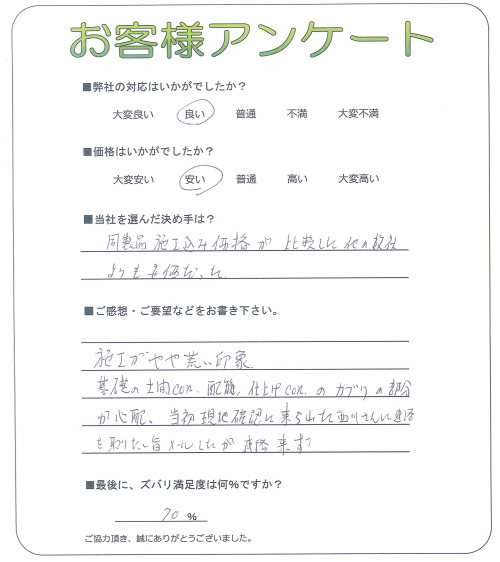 お客様アンケート
■弊社の対応はいかがでしたか？
大変良い 良い 普通 不満 大変不満
■価格はいかがでしたか？
大変安い 安い 普通 高い 大変高い
■当社を選んだ決め手は？
同製品施工込み価格が比較した他の数社
よりも安価だった
■ご感想・ご要望などをお書き下さい。
施工がやや荒い印象
基礎の土間con.配筋,仕上げcon.のカブリの部分
が心配、当初現地確認に来られた さんに連絡
を取りたい旨メールしたが連絡来ず
■最後に、ズバリ満足度は何%ですか？
70 %
ご協力頂き、誠にありがとうございました。